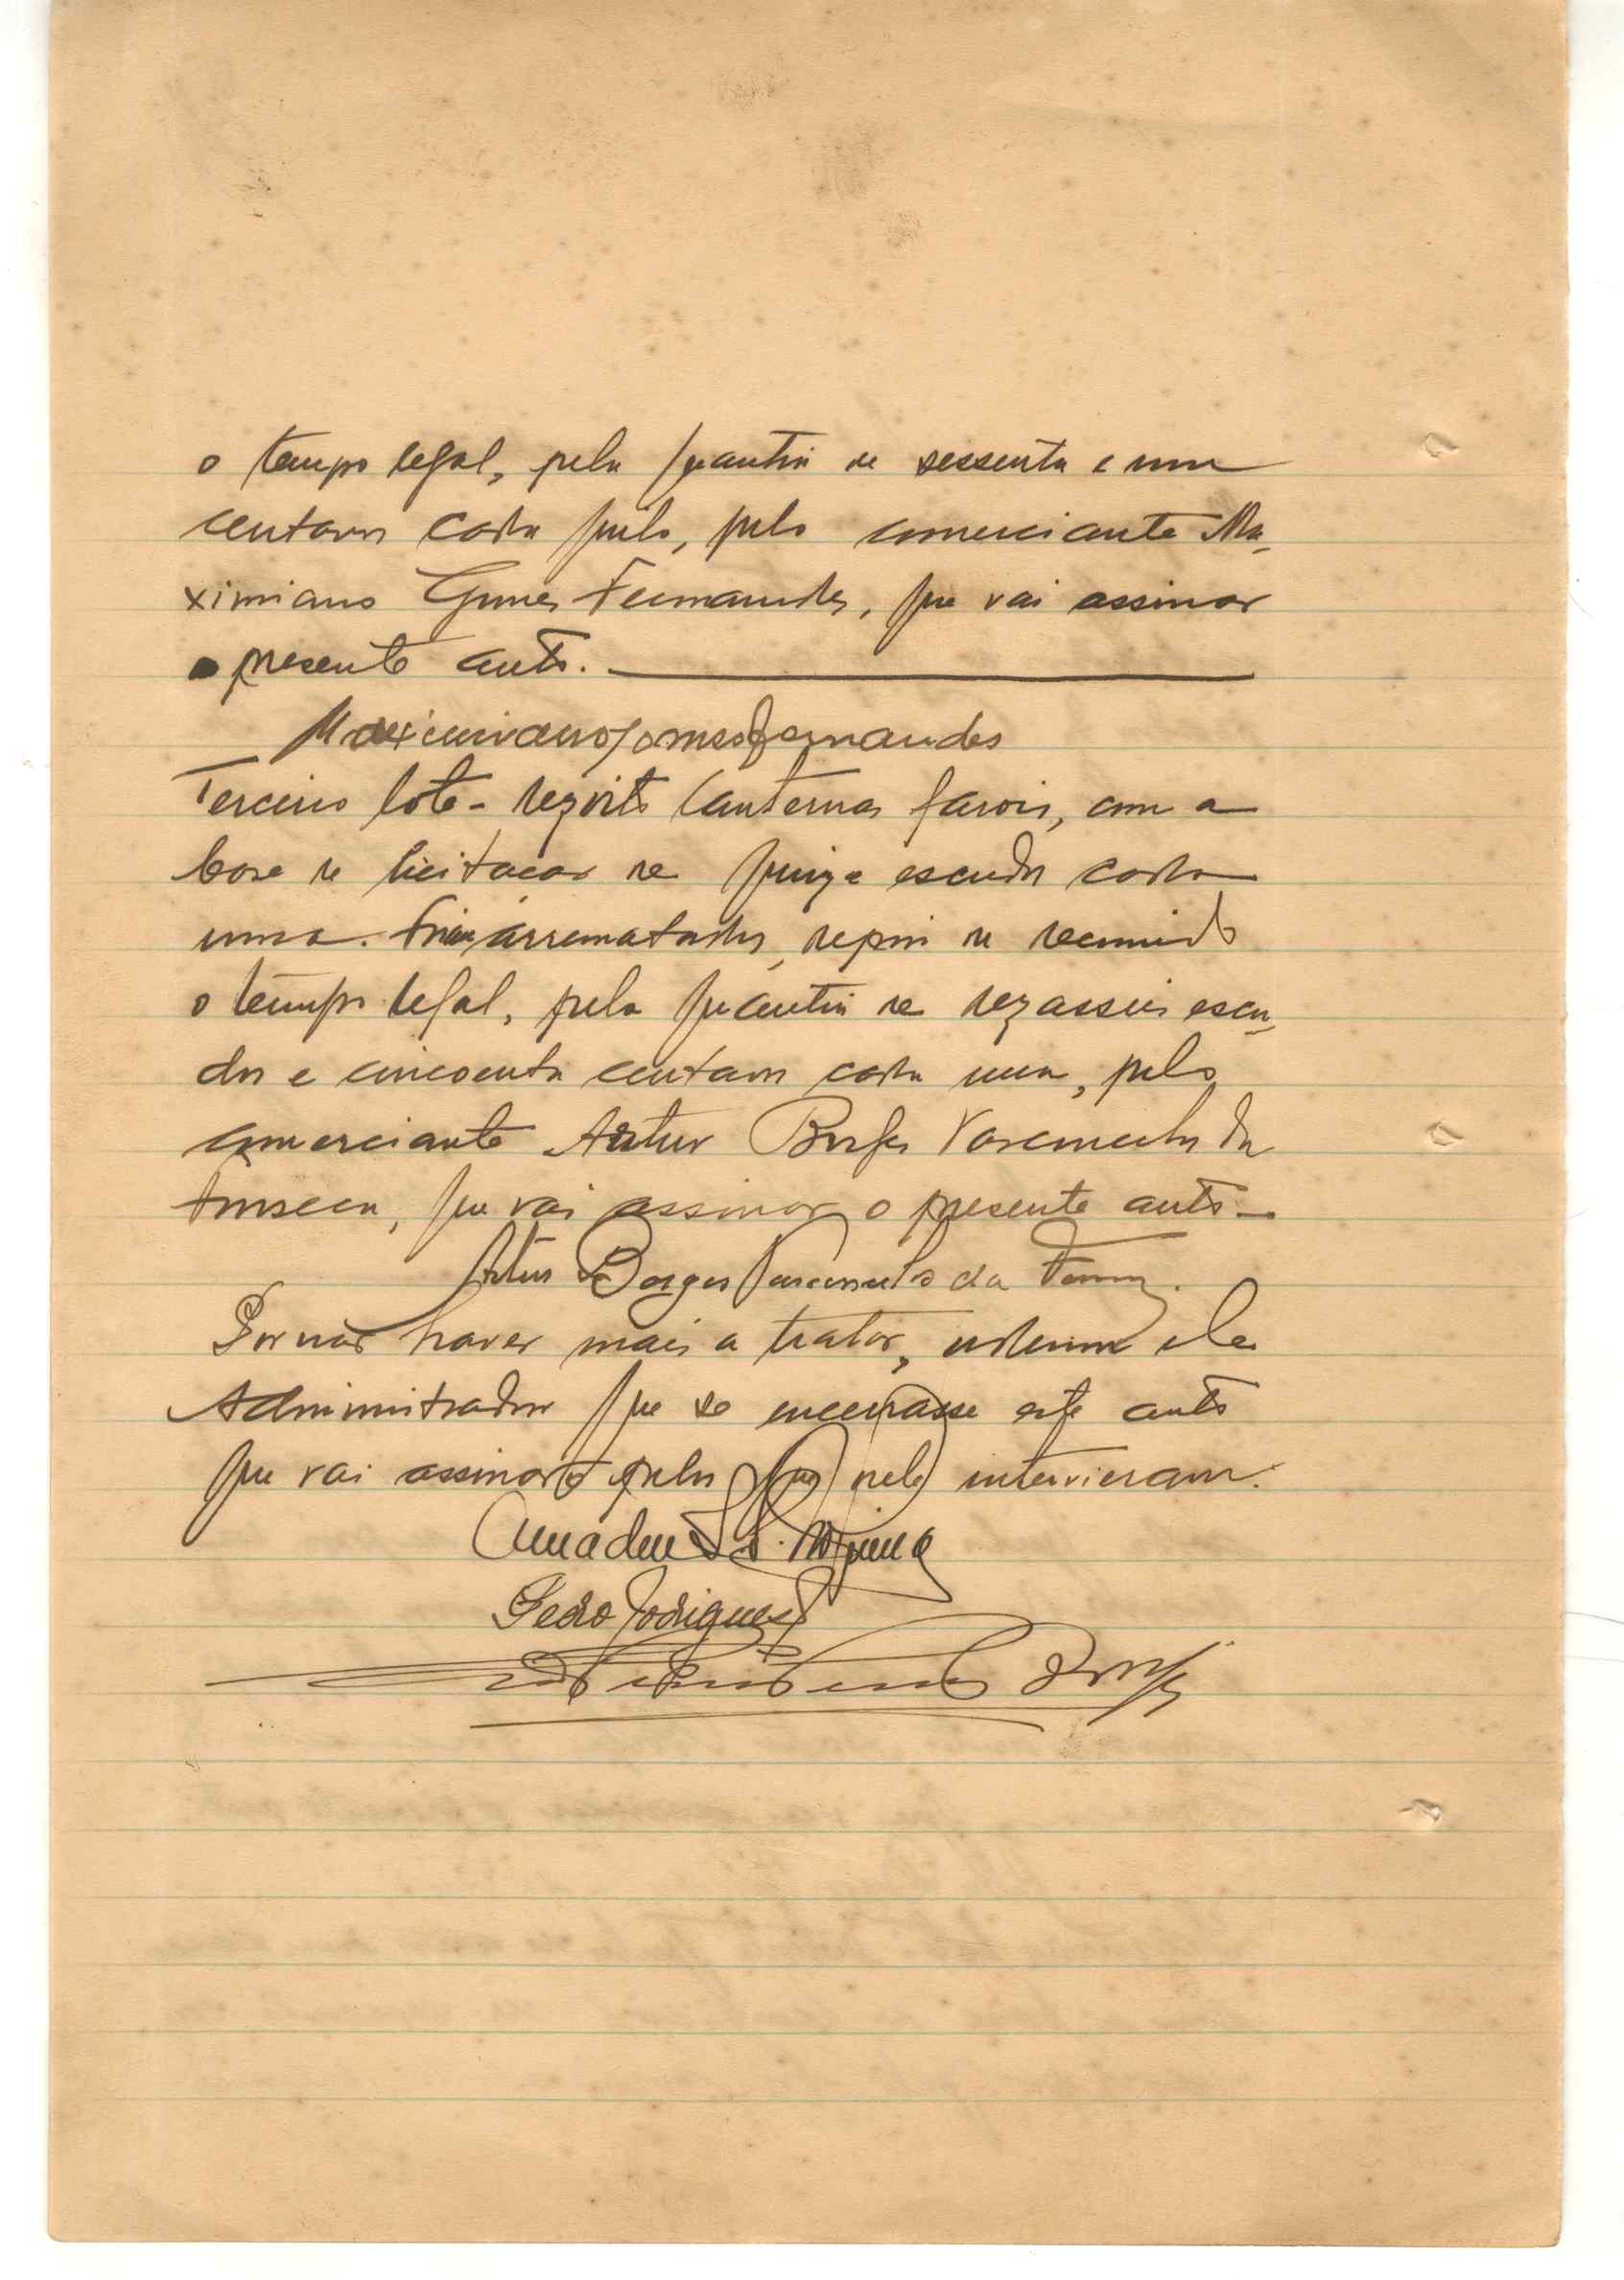 o tempo legal, pela quantia de sessenta e um
centavos cada quilo, pelo comerciante Ma-
ximiano Gomes Fernandes, que vai assinar
o presente auto.
Maximiano Gomes Fernandes
Terceiro lote - dezoito lanternas farois, com a
base de licitacao de quinze escudos cada
uma. Foram arrematadas, depois de decorrido
o tempo legal, pela quantia de dezasseis escu-
dos e cincoenta centavos cada uma, pelo
comerciante Artur Borges Vasconcelos da
Fonseca, que vai assinar o presente auto -
Artur Borges Vasconcelos da
Por não haver mais a tratar, ordenou ele
Administrador que se encerrasse este auto
que vai assinado pelos que nele intervieram.
Amadeu
Pedro Rodrigues